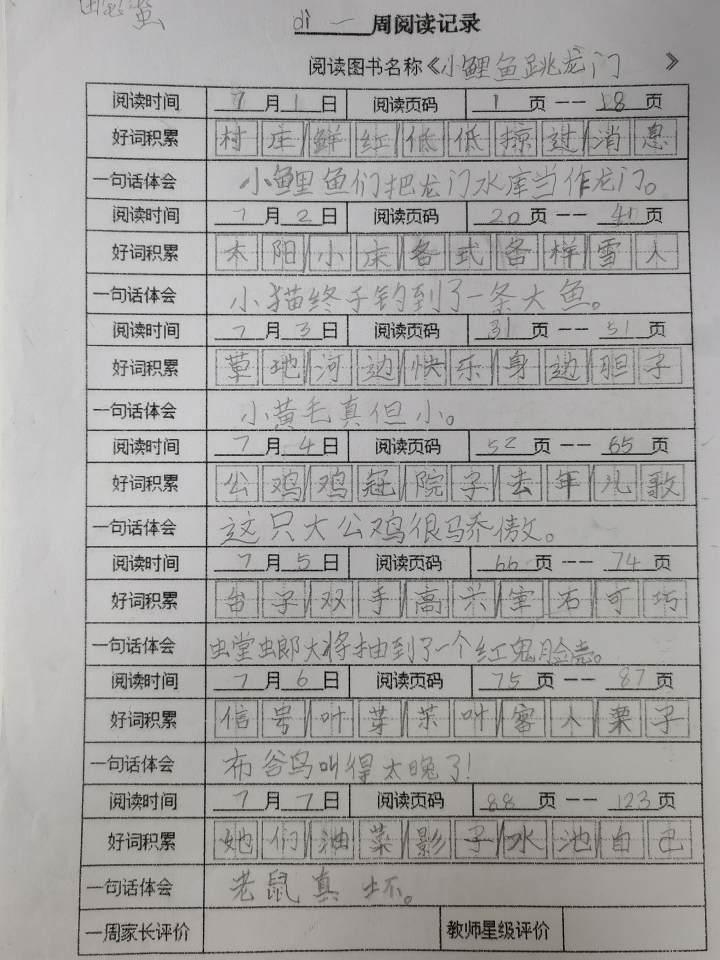 dì 一 周阅读记录
阅读图书名称《小鲤鱼跳龙门》
阅读时间 7月1日 阅读页码 1页——18页
好词积累 村庄/鲜红/低低/掠过/消息
一句话体会 小鲤鱼们把龙门水库当作龙门。
阅读时间 7月2日 阅读页码 20页——41页
好词积累 太阳/小床/各式各样雪人
一句话体会 小猫终于钓到了一条大鱼。
阅读时间 7月3日 阅读页码 31页——51页
好词积累 草地/河边/快乐/身边/胆子
一句话体会 小黄毛真但小。
阅读时间 7月4日 阅读页码 52页——65页
好词积累 公鸡/鸡冠/院子/去年/儿歌
一句话体会 这只大公鸡很马乔傲。
阅读时间 7月5日 阅读页码 66页——74页
好词积累 台子/双手/高兴/宝石/可巧
一句话体会 虫堂虫郎大将抽到了一个红鬼脸壳。
阅读时间 7月6日 阅读页码 75页——87页
好词积累 信号/叶芽/茶叶/客人/栗子
一句话体会 布谷鸟叫得太晚了!
阅读时间 7月7日 阅读页码 88页——123页
好词积累 她们/油菜/影子/水池/自己
一句话体会 老鼠真坏。
一周家长评价 教师星级评价